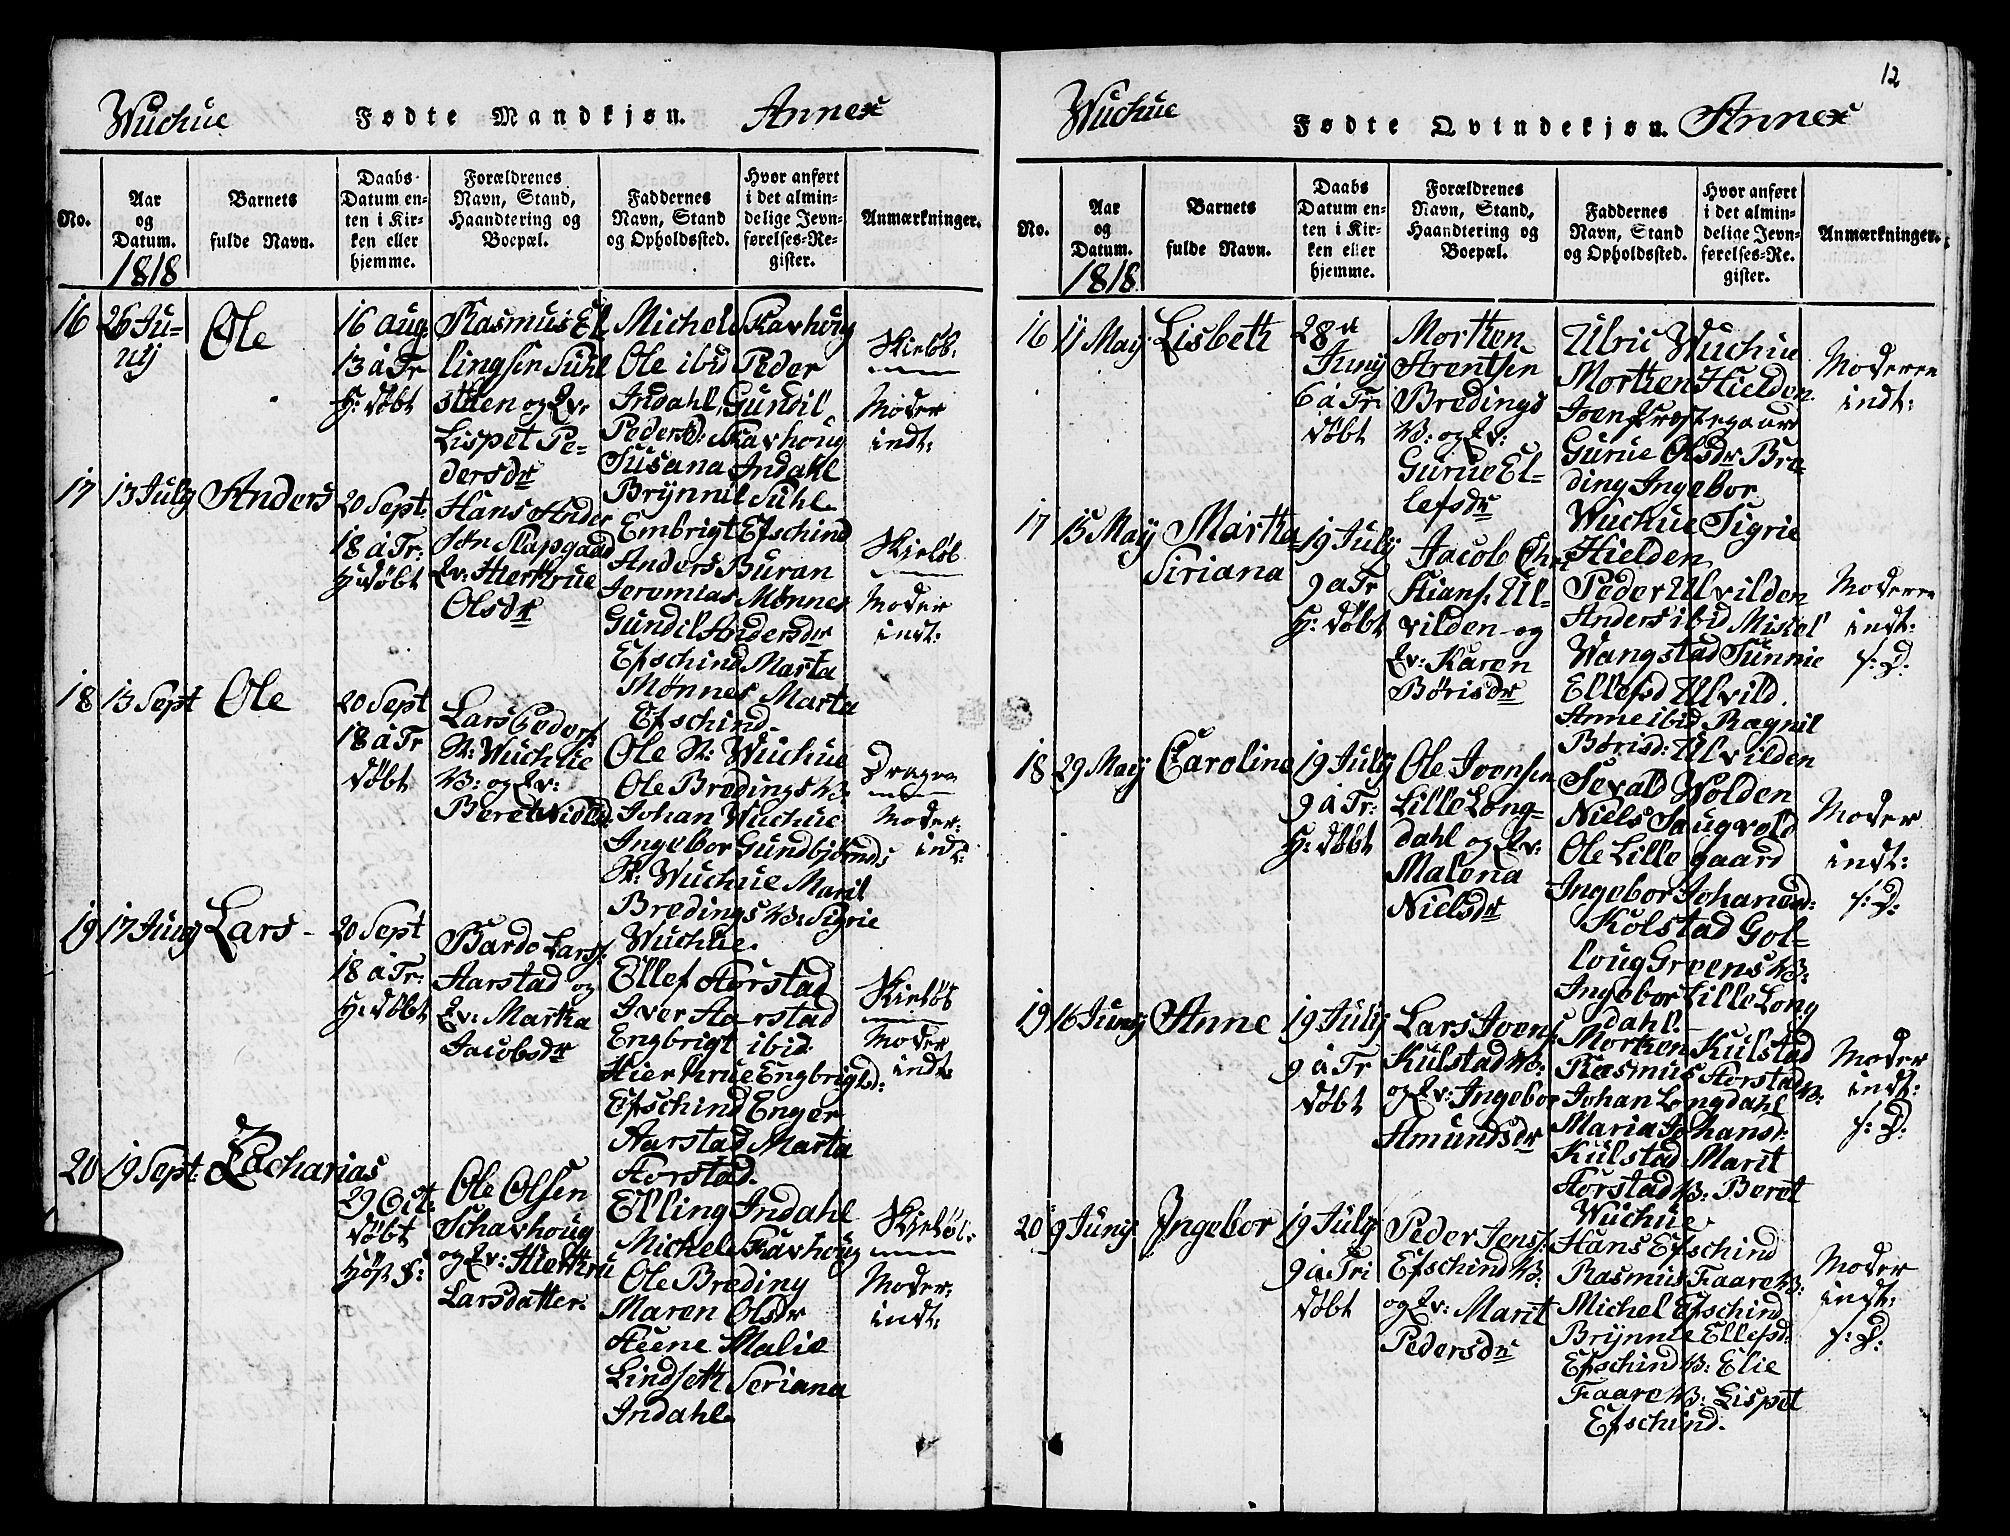 Wuchue Fødte Mandkjøn. Annex
No.
Aar og Datum. 1818
Barnets fulde Navn.
Daabs-Datum enten i Kirken eller hjemme.
Forældrenes Navn, Stand, Haandtering og Boepæl.
Faddernes Navn, Stand og Opholdssted.
Hvor anført i det almindelige Jevnførelses-Register.
Anmærkninger.
16 26 Ju-
nij
Ole
16 aug.
13 à Tr
H: døbt
Rasmus El
lingsen Suhl
stuen og Qv:
Lispet Pe-
dersdr
Michel Skavhoug
Ole ibid Peder
Indahl, Gundil
Pedersd: Skavhoug
Susana Indahl
Brynnil Suhl
Skieløb.
Moder
indt:
17 13 July Anders
20 Sept:
18 à Tr:
H: døbt
Hans Ander
Sen Slapgaad
Qv: Hierthrue
Olsdr
Embrigt Efschind
Anders Buran
Jeremias Mønnes
Gundil Andersdr
Efschind Marta
Mønnes Marta
Efschind
Skieløb
Moder
indt:
18 13 Sept Ole
20 Sept
18 à Tr
døbt
Lars Peders
St: Wuchue
W: og Qv:
Beret
Ole St: Wuchue
Ole Bredings W:
Johan Wuchue
Ingebor Gundbjørnds
St: Wuchue Maril
Bredings W: Sigrie
Wuchue.
Dragon
Moder:
indt:
19 17 Junij Lars
20 Sept
18 à Tr:
H: døbt
Bardo Lars:
Aarstad og
Qv: Martha
Jacobsdr
Ellef Storstad
Iver Aarstad
Engbrigt ibid
Hierthrue Engbrigtsd:
Efschind Enger
Aarstad Marta
Storstad.
Skieløb
Moder
indt:
20 19 Sept: Zacharias
29 Oct:
døbt
Høst F:
Ole Olsen
Schavhoug
og Qv: Hierthru
Larsdatter.
Elling Indahl
Michel Skavhoug
Ole Breding
Maren Olsdr
Steene Malie
Lindseth Seriana
Indahl.
Skieløb:
Moder:
indt:
12
Wuchue Fødte Qvindekjøn. Annex
No.
Aar og Datum. 1818
Barnets fulde Navn.
Daabs Datum enten i Kirken eller hjemme.
Forældrenes Navn, Stand, Haandtering og Boepæl.
Faddernes Navn, Stand og Opholdssted.
Hvor anført i det almindelige Jevnførelses-Register.
Anmærkninger.
16 11 May Lisbeth
28de
Junij
6 à Tr:
døbt
Morthen
Arentsen
Bredings
W: og Qv:
Gurue El-
lefsdr
Ulric Wuchue
Morthen Hielden
Joen Præstegaar
Gurue Olsdr Bre-
ding Ingebor
Wuchue Sigrie
Hielden
Moderen
indt:
17 15 May Martha
Siriana
19 July
9 à Tr
H: døbt
Jacob Chri
stians. Ul-
vilden og
Qv: Karen
Børisdr
Peder Ulvilden
Anders ibid Mikel
Wangstad Sunnie
Ellefsd Ulvild.
Anne ibid Ragnil
Børisd: Ulvilden
Moderen
indt:
f: D:
18 29 May Caroline
19 July
9 à Tr:
H: døbt
Ole Joensen
Lille Long-
dahl og Qv:
Malena
Nielsdr
Sevald Wolden
Niels Saugvold
Ole Lillegaard
Ingebor Johansd:
Kolstad Gol-
loug Greens W:
Ingebor Lille Long
dahl.
Moder
indt:
f: D:
19 16 Junij Anne
19 July
9 à Tr
døbt
Lars Joens
Kulstad W:
og Qv: Ingebor
Amundsdr
Morthen Kulstad
Rasmus Storstad W:
Johan Longdahl
Maria Johansdr
Kulstad Marit
Storstad W: Beret
Wuchue
Moder
indt:
f: D:
20 9 Junij Ingebor
19 July
9 à Tri
døbt
Peder Jens:
Efschind W:
og Qv: Marit
Pedersdr
Hans Efschind
Rasmus Faare W:
Michel Efschind
Brynnie Ellefsd:
Efschind W: Elie
Faare W: Lispet
Efschind.
Moder
indt:
f: D: